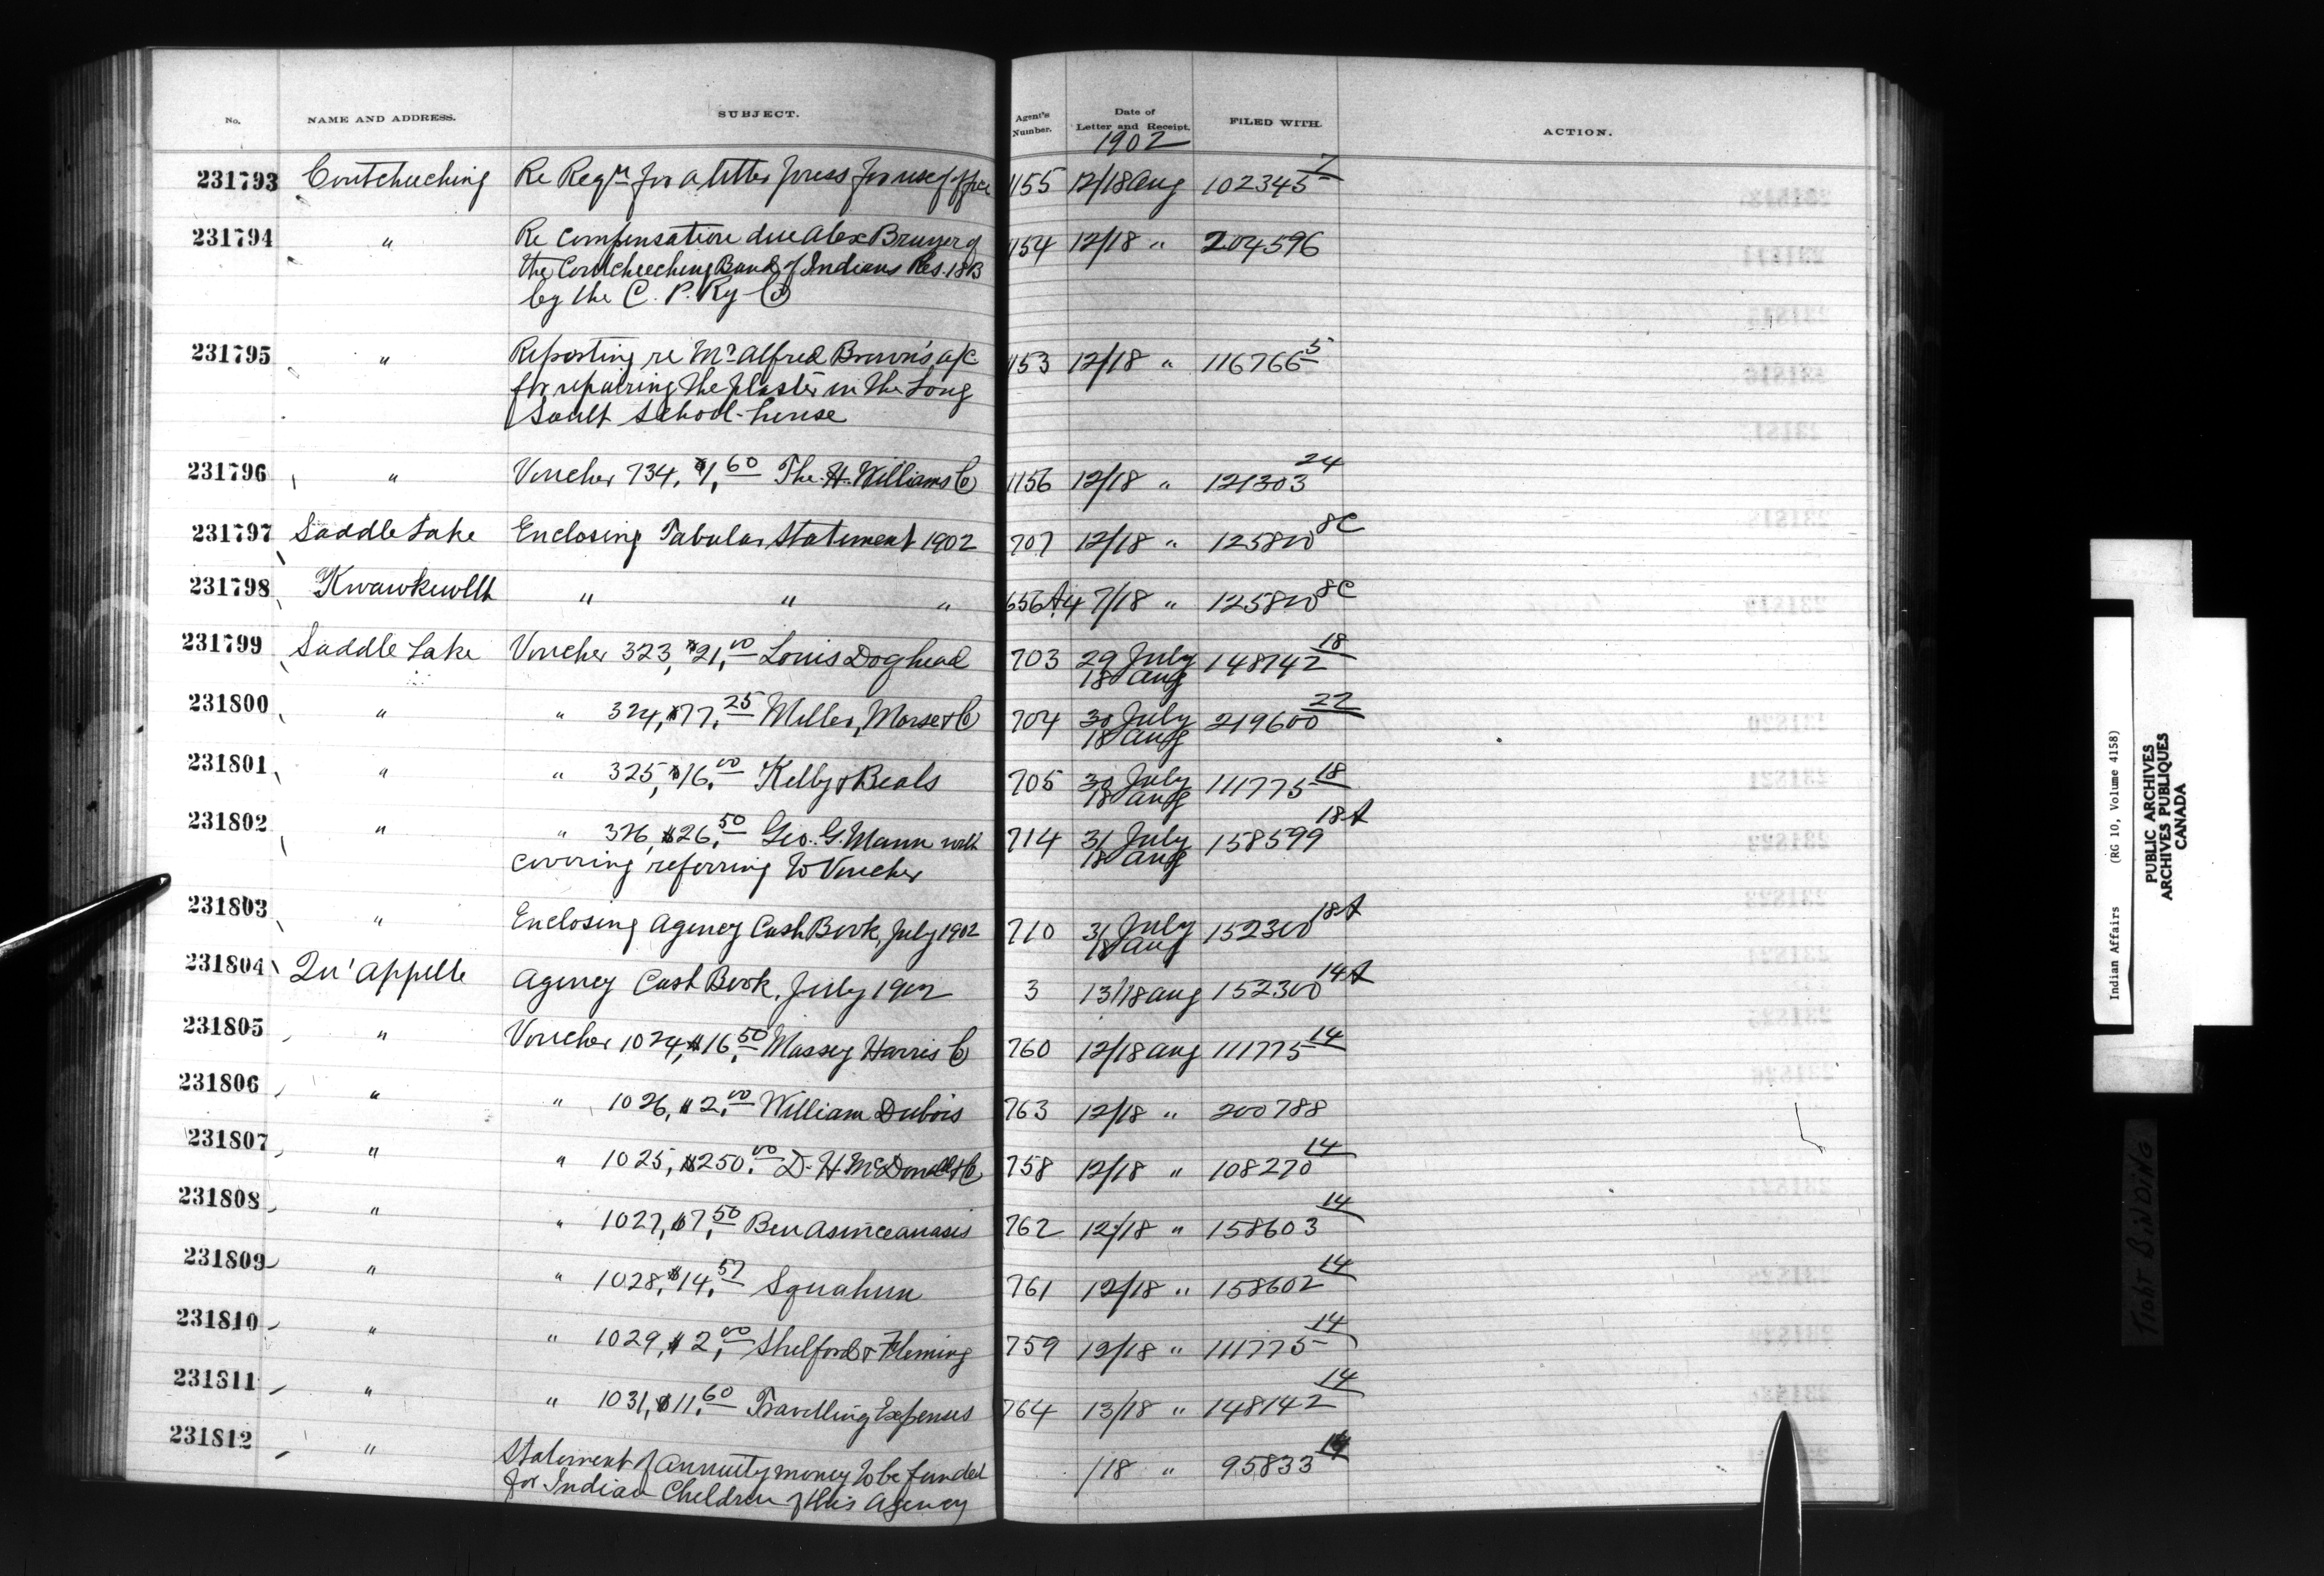 No. NAME AND ADDRESS. SUBJECT. Agent's Number. Date of Letter and Receipt. FILED WITH. ACTION.
1902
231793 Coutcheeching Re Reqn for a letter press for use of office 1155 12/18 Aug 102345 7
231794 " Re Compensation due Alex Bruyer of 1154 12/18 " 204596
the Coutcheeching Band of Indians Res. 18B
by the C. P. Ry Co
231795 " Reporting re Mr Alfred Brown's a/c 1153 12/18 " 116766 5
for repairing the plaster in the Long
Sault School-house
231796 " Voucher 734, $1,60 The H. Williams Co 1156 12/18 " 121303 24
231797 Saddle Lake Enclosing Tabular Statement 1902 707 12/18 " 125800 8C
231798 Kwawkewlth " " " 656A4 7/18 " 125800 8C
231799 Saddle Lake Voucher 323, $21,00 Louis Doghead 703 29 July 148142 18
18 Aug
231800 " " 324, $77,25 Miller, Morse & Co 704 30 July 219600 22
18 Aug
231801 " " 325, $16,00 Kelly & Beals 705 30 July 111775 18
18 Aug
231802 " " 326, $26,50 Geo. G. Mann with 714 31 July 158599 18A
covering referring to Voucher 18 Aug
231803 " Enclosing Agency Cash Book, July 1902 710 31 July 152300 18A
18 Aug
231804 Qu'Appelle Agency Cash Book, July 1902 3 13/18 Aug 152300 14A
231805 " Voucher 1024, $16,50 Massey Harris Co 760 12/18 Aug 111775 14
231806 " " 1026, $2,00 William Dubois 763 12/18 " 200788
231807 " " 1025, $250,00 D. H. McDonald & Co 758 12/18 " 108270 14
231808 " " 1027, $7,50 Ben 762 12/18 " 158603 14
231809 " " 1028, $14,57 Squahun 761 12/18 " 158602 14
231810 " " 1029, $2,00 Shelford & Fleming 759 12/18 " 111775 14
231811 " " 1031, $11,60 Travelling Expenses 764 13/18 " 148142 14
231812 " Statement of annuity money to be funded /18 " 95833 14
for Indian Children of this Agency
Indian Affairs (RG 10, Volume 4158)
PUBLIC ARCHIVES
ARCHIVES PUBLIQUES
CANADA
TIGHT BINDING